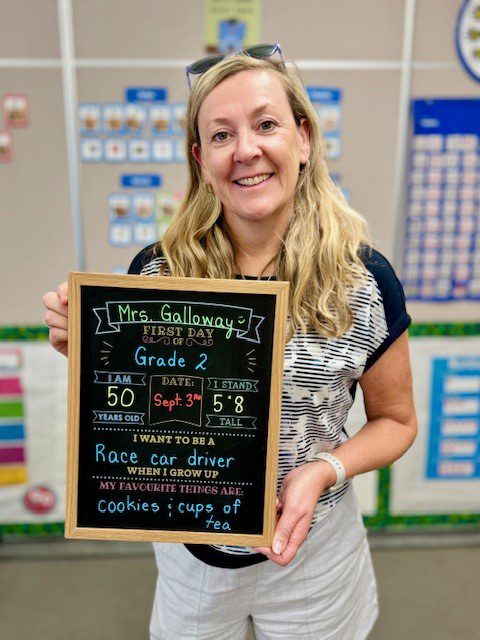 Mrs. Galloway
FIRST DAY
OF
Grade 2
I AM
50
YEARS OLD
DATE:
Sept. 3rd
I STAND
5"8
TALL
I WANT TO BE A
Race car driver
WHEN I GROW UP
MY FAVOURITE THINGS ARE:
Cookies & cups of
tea